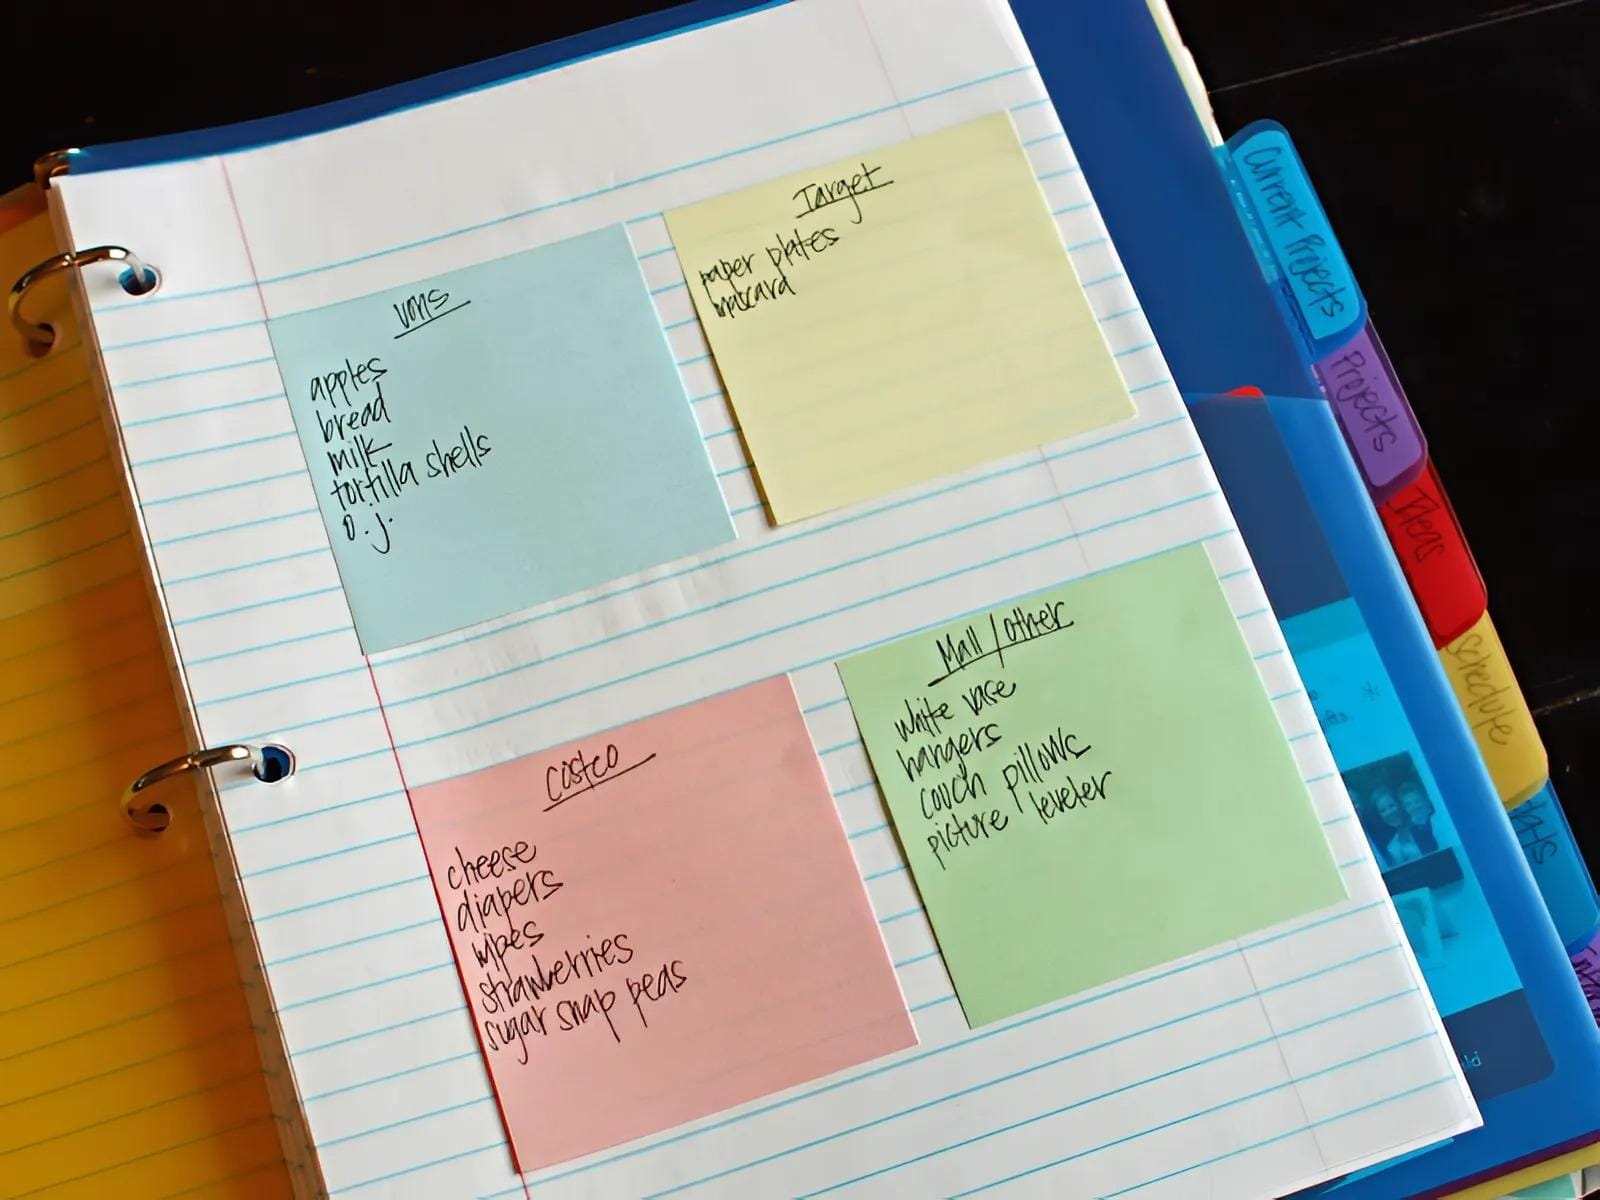 Vons
apples
bread
milk
tortilla shells
o.j.
Target
paper plates
mascara
Costco
cheese
diapers
wipes
strawberries
sugar snap peas
Mall / other
white vase
hangers
couch pillows
picture leveler
Current Projects
Projects
Ideas
Schedule